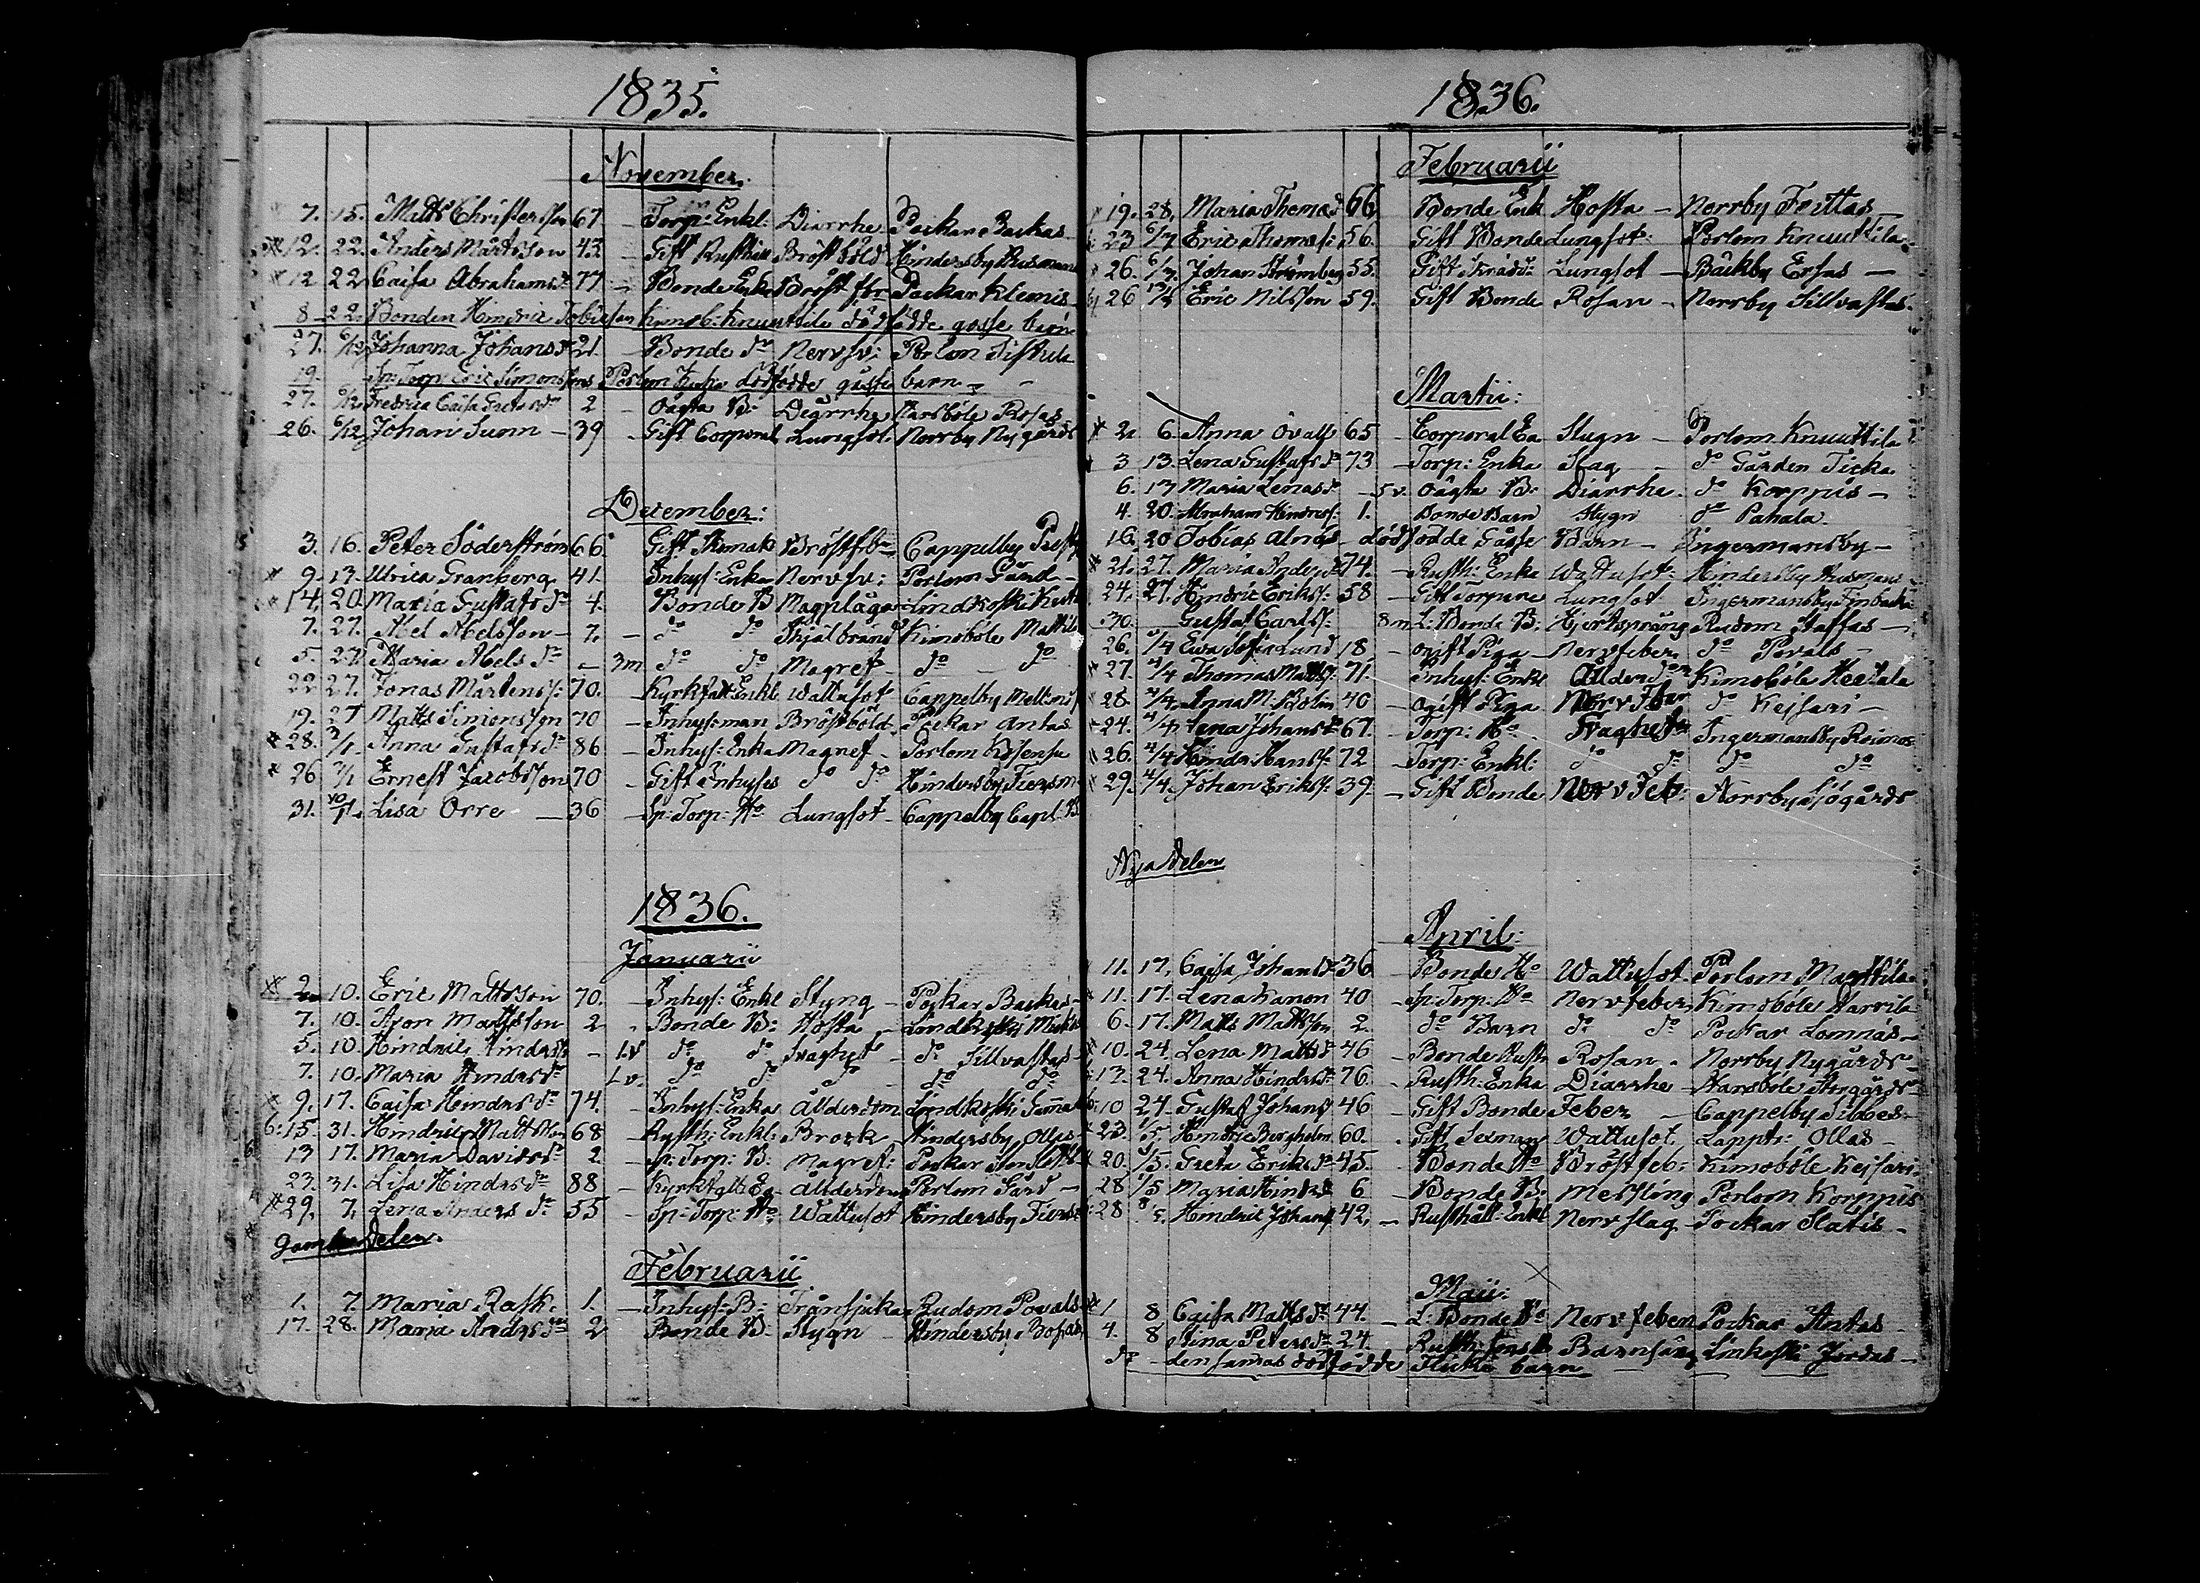 1835.
November.
7. 15. Matts Christersson 67 - Torp: Enkl. Diarrhe Pockar Backas
12. 22. Anders Mårtenson 43. - Gift Rusthåll Bröstböld Hindersby Husmans
12 22 Caisa Abrahamsdr 77 - Bonde Enka Bröst fbr Pockar Klemis
8 22. Bonden Hindric Tobiesson Kimob: Knuuttila dödfödde gosse barn
27. 6/12 Johanna Johansdr 21. - Bonde dr Nervfv: Porlom Sistula
19. Sp: Torp: Eric Simonssons Porlom dödfödde gåsse barn
27. 6/12 Fredrica Caisa Gretasdr 2 - Oägta B: Diarrhe Hansböle Rosas
26. 6/12 Johan Sunn - 39 - Gift Corporal Lungsot. Norrby Nygårds
December:
3. 16. Peter Söderström 66. Gift Skomak Bröstfbr Cappelby
9. 13. Ulrica Granberg 41. - Inhys: Enka Nervfv: Porlom Gård -
14. 20. Maria Gustafsdr 4. Bonde B Magplåga Lindkoski
7. 27. Abel Abelsson - 7. - do do Skjälbrand Kimoböle Mattila
5. 27. Maria Abelsdr - 3m do do Magref - do - do
22 27. Jonas Mårtenss: 70. - Kyrkfatt: Enkl Wattusot Cappelby
19. 27 Matts Simonsson 70 - Inhys:man Bröstböld Pockar Antas
28. 3/1. Anna Gustafsdr 86 - Inhys: Enka Magref - Porlom
26 3/1 Ernest Jacobsson 70 - Gift Inhyses do do Hindersby
31. 10/1. Lisa Orre - 36 - Sp: Torp: Ho Lungsot - Cappelby Capl: B
1836.
Januarii
2. 10. Eric Mattsson 70. - Inhys: Enkl Styng - Pockar Backas -
7. 10. Aron Mattsson 2 - Bonde B: Hosta - Lindkoski
5. 10 Hindric Hindrss: - 1.v do do Svaghet - do Sillvastas
7. 10. Maria Hindrsdr 1 v. do do do do do
9. 17. Caisa Hindrsdr 74. - Inhys: Enka Ålderdom Lindkoski
15. 31. Hindric Mattsson 68 - Rusth: Enkl: Brock Hindersby Ollas
13 17. Maria Davidsdr 2. - Sp: Torp: B: Magref: Pockar
23. 31. Lisa Hindrsdr 88 - Kyrkfatt: En - Ålderdom Porlom Gård -
29. 7. Lena Andersdr 55 - Sp: Torp: Ho Wattusot Hindersby
Gamla Delen.
Februarii
1. 7. Maria Rask. 1. - Inhys: B: Trånsjukan Rudom Povals
17. 28. Maria Andrsdr 2 Bonde B: Stygn - Hindersby Bosas
1836.
Februarii
19. 28. Maria Thomasdr 66 Bonde Enk Hosta - Norrby
23 6/3 Eric Thomass: 56. Gift Bonde Lungsot: Porlom Knuuttila
26. 6/3 Johan Strömberg 55. Gift Skrädd: Lungsot - Bäckby Ersas -
26 13/3 Eric Nilsson 59. Gift Bonde Rosan - Norrby Sillvastas.
Martii:
2. 6. Anna Övall 65 - Corporal En Stygn - Porlom Knuuttila
3 13. Lena Gustafsdr 73 - Torp: Enka Slag - do Gården Ticka
6. 13 Maria Lenasdr - 5v. Oägta B: Diarrhe. do Korppus -
4. 20. Abraham Hindrss: 1. Bonde Barn Stygn do Pahala.
16. 20 Tobias Alnäs - dödfödde Gåsse Barn - Ingermansby -
21. 27. Maria Andersdr 74. - Rusth: Enka Wattusot: Hindersby Husmans
24. 27. Hindric Erikss: 58 - Gift Torpare Lungsot Ingermansby
30. Gustaf Carlss: 8m L: Bonde B: Hjertsprång Rudom Staffas -
26. 4/4 Ewa Sofia Lund 18. - ogift Piga - Nervfeber do Povals -
27. 4/4 Thomas Mattss: 71. Inhys: Enkl Ålderdom Kimoböle
28. 4/4 Anna M: Bolin 40 - ogift Piga Nerv Fbr do Keisari -
24. 4/4 Lena Johansdr 67. - Torp: Ho. Svaghet Ingermansby Reimos
26. 4/4 Hindr: Hanss: 72 - Torp: Enkl: do do do do
29. 4/4. Johan Erikss: 39. - Gift Bonde Nerv Feb: Norrby Sjögårds
Nya Delen
April:
11. 17. Caisa Johansdr 36 - Bonde Ho Wattusot. Porlom Marttila
11. 17. Lena Kanon 40 - Sp: Torp: Ho Nervfeber, Kimoböle
6. 17. Matts Mattsson 2. do Barn do do Pockar Lomnäs -
10. 24. Lena Mattsdr 46 - Bonde Rosan - Norrby Nygårds
17. 24. Anna Hindrsdr 76. - Rusth: Enka Diarrhe - Hansböle
10 24. Gustaf Johans 46 - Gift Bonde Feber - Cappelby Sibbes
23. 1/5. Hindric Bergholm 60. - Gift Sexman Wattusot Lapptr: Ollas -
20. 1/5. Greta Eriksdr 45. - Bonde Ho Bröstfeb: Kimoböle Keisari
28 1/5 Maria Hindrsdr 6 - Bonde B: Messling Porlom Korppus
28 8/5. Hindric Johanss: 42, - Rusthåll: Enkl Nervslag - Pockar Slätis -
Maii:
1 8 Caisa Mattsdr 44. - L: Bonde Ho Nervfeber Pockar Antas -
4. 8 Stina Petersdr 24. Rusth: Barnsäng Linkoski Jordas -
do - densammas dödfödde flicke barn